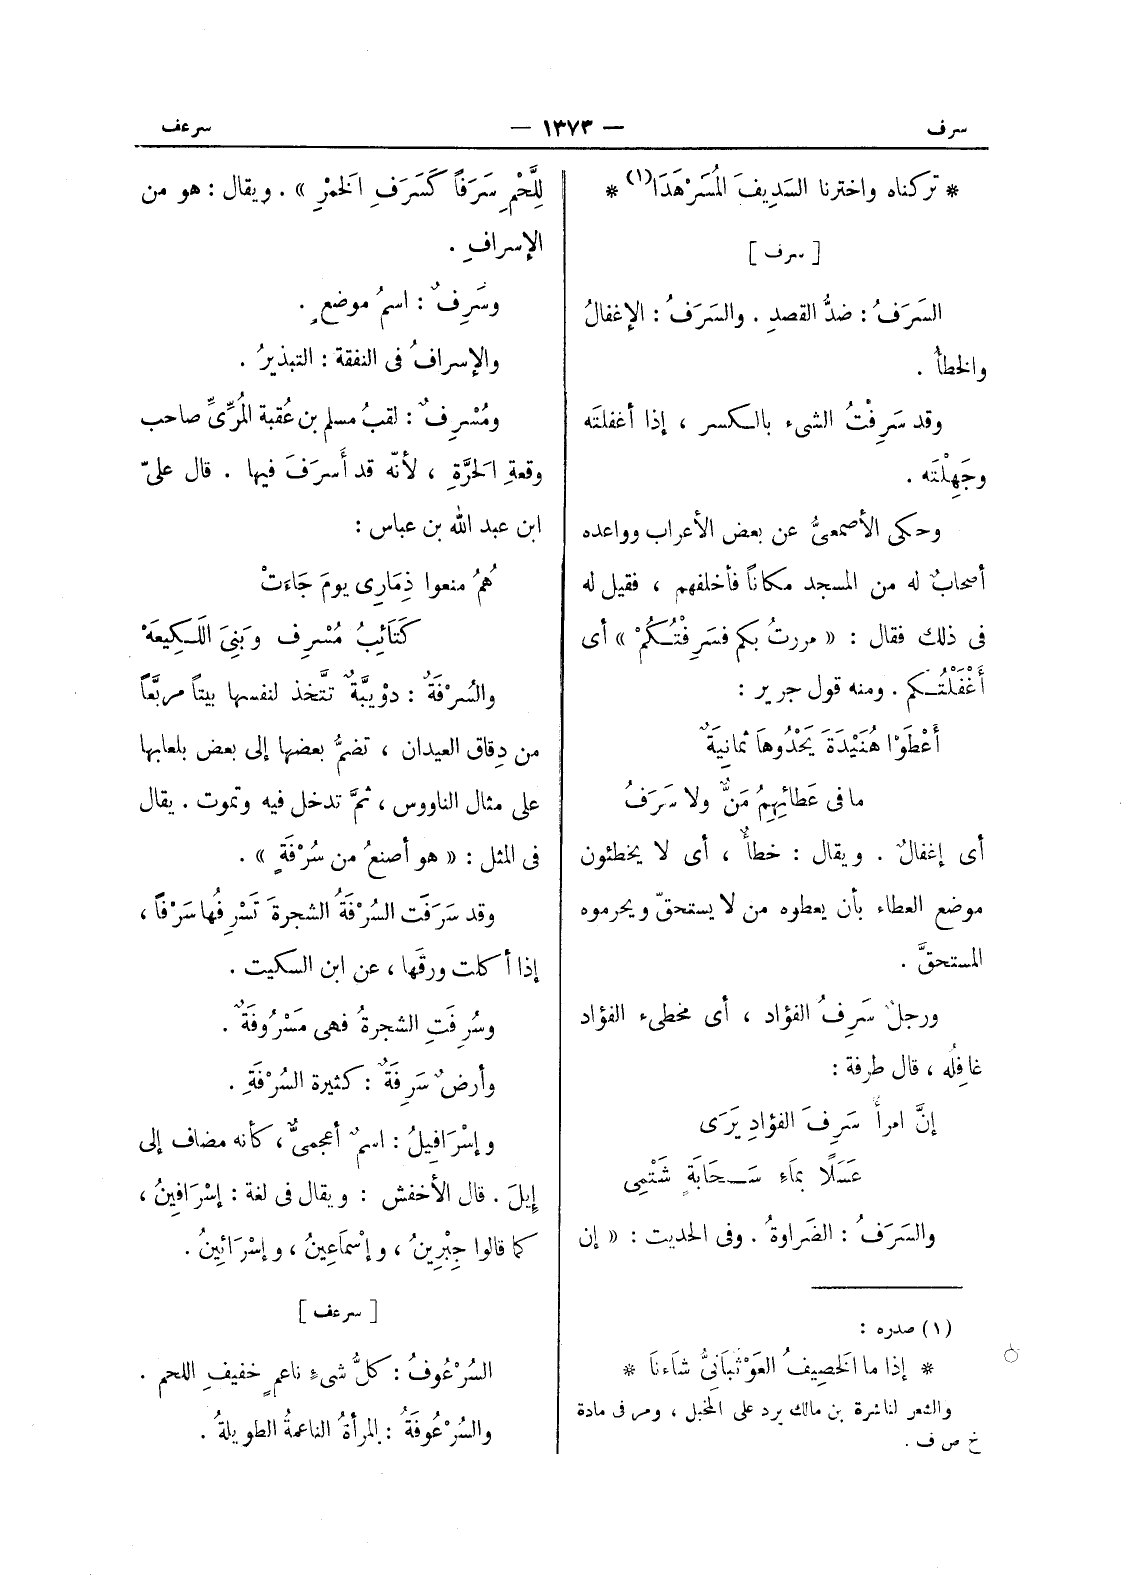 سرف — ١٣٧٣ — سرعف
* تركناه واخترنا السَدِيفَ المُسَرْهَدَا(١) *
[ سرف ]
السَرَفُ : ضدُّ القصدِ . والسَرَفُ : الإغفالُ
والخطأُ .
وقد سَرِفْتُ الشىء بالكسر ، إذا أغفلتَه
وجَهِلْتَه .
وحكى الأصمعىُّ عن بعض الأعراب وواعده
أصحابٌ له من المسجد مكاناً فأخلفهم ، فقيل له
فى ذلك فقال : « مررتُ بكم فسَرِفْتُكُمْ » أى
أَغْفَلْتُكم . ومنه قول جرير :
أَعْطَوْا هُنَيْدَةَ يَحْدُوهَا ثمانِيَةٌ
ما فى عَطائِهِمُ مَنٌّ ولا سَرَفُ
أى إغفالٌ . ويقال : خطأٌ ، أى لا يخطئون
موضع العطاء بأن يعطوه من لا يستحقّ ويحرموه
المستحقَّ .
ورجلٌ سَرِفُ الفؤاد ، أى مخطىء الفؤاد
غافِلُه ، قال طرفة :
إنَّ امرأً سَرِفَ الفؤادِ يَرَى
عَسَلًا بمَاءِ سَحَابَةٍ شَتْمِى
والسَرَفُ : الضَراوةُ . وفى الحديث : « إن
(١) صدره :
* إذا ما الخَصِيفُ العَوْثَبَانِىُّ شاءَنَا *
والشعر لناشرة بن مالك يرد على المخبل ، ومر فى مادة
خ ص ف .
لِلَّحْمِ سَرَفاً كَسَرَفِ الخَمْرِ » . ويقال : هو من
الإسرافِ .
وسَرِفٌ : اسمُ موضعٍ .
والإسرافُ فى النفقة : التبذيرُ .
ومُسْرِفٌ : لقبُ مسلم بن عُقبة المُرِّىِّ صاحب
وقعةِ الحَرَّةِ ، لأنّه قد أَسرَفَ فيها . قال علىّ
ابن عبد الله بن عباس :
هُمُ منعوا ذِمَارِى يومَ جَاءَتْ
كَتَائِبُ مُسْرِفٍ وبَنِى اللَكِيعَهْ
والسُرْفَةُ : دوْيبَّةٌ تتَّخذ لنفسها بيتاً مربَّعاً
من دِقاق العيدان ، تضمُّ بعضها إلى بعض بلعابها
على مثال الناووس ، ثمَّ تدخل فيه وتموت . يقال
فى المثل : « هو أصنعُ من سُرْفَةٍ » .
وقد سَرَفَت السُرْفَةُ الشجرةَ تَسْرِفُها سَرْفاً ،
إذا أكلت ورقَها ، عن ابن السكيت .
وسُرِفَتِ الشجرةُ فهى مَسْرُوفَةٌ .
وأرضٌ سَرِفَةٌ : كثيرة السُرْفَةِ .
وإسْرَافِيلُ : اسمٌ أعجمىٌّ ، كأنه مضاف إلى
إيلَ . قال الأخفش : ويقال فى لغة : إسْرَافِينُ ،
كما قالوا جِبْرِينُ ، وإسْمَاعِينُ ، وإسْرَائِينُ .
[ سرعف ]
السُرْعُوفُ : كلُّ شىءٍ ناعمٍ خفيفِ اللحم .
والسُرْعُوفَةُ : المرأةُ الناعمةُ الطويلةُ .